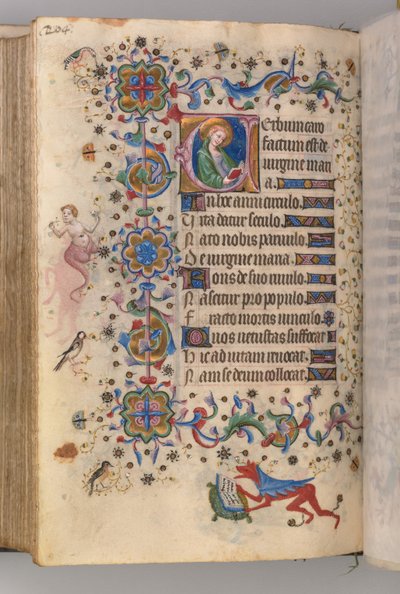 204.
Verbum caro
factum est de
virgine mari
a.
In hoc anni circulo.
Vita datur seculo.
Nato nobis parvulo.
De virgine maria.
Fons de suo rivulo.
Nascitur pro populo.
Fracto mortis vinculo.
Quos vetustas suffocat
Hic ad vitam revocat.
Nam se deum collocat.